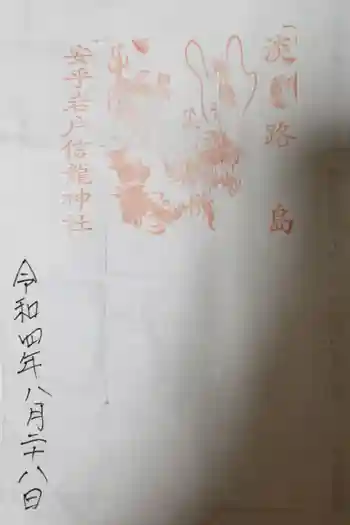 淡路島
安乎岩戸信龍神社
令和四年八月二十八日